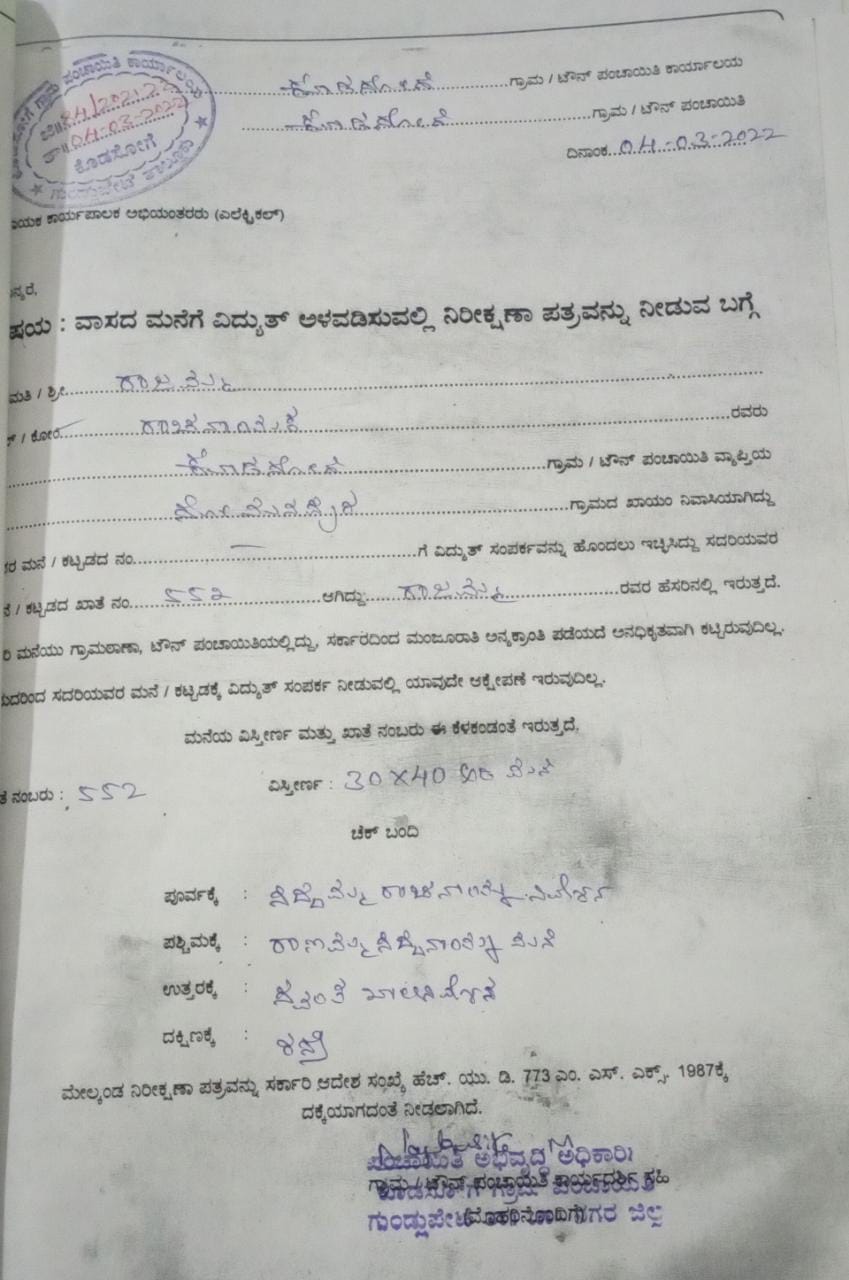 ಗ್ರಾಮ ಪಂಚಾಯಿತಿ ಕಾರ್ಯಾಲಯ
84/2021-22
04-03-2022
ಕೊಡಸೋಗೆ
ಗುಂಡ್ಲುಪೇಟೆ ತಾಲ್ಲೂಕು
ಕೊಡಸೋಗೆ ಗ್ರಾಮ / ಟೌನ್ ಪಂಚಾಯಿತಿ ಕಾರ್ಯಾಲಯ
ಕೊಡಸೋಗೆ ಗ್ರಾಮ / ಟೌನ್ ಪಂಚಾಯಿತಿ
ದಿನಾಂಕ 04-03-2022
ಕಾರ್ಯಪಾಲಕ ಅಭಿಯಂತರರು (ಎಲೆಕ್ಟ್ರಿಕಲ್)
ನ್ಯರೆ,
ಷಯ : ವಾಸದ ಮನೆಗೆ ವಿದ್ಯುತ್ ಅಳವಡಿಸುವಲ್ಲಿ ನಿರೀಕ್ಷಣಾ ಪತ್ರವನ್ನು ನೀಡುವ ಬಗ್ಗೆ
ಮತಿ / ಶ್ರೀ ರಾಜಮ್ಮ
/ ಕೋಂ ರಾಚನಾಯಕ ರವರು
ಕೊಡಸೋಗೆ ಗ್ರಾಮ / ಟೌನ್ ಪಂಚಾಯಿತಿ ವ್ಯಾಪ್ತಿಯ
ಗ್ರಾಮದ ಖಾಯಂ ನಿವಾಸಿಯಾಗಿದ್ದು
ರ ಮನೆ / ಕಟ್ಟಡದ ನಂ. — ಗೆ ವಿದ್ಯುತ್ ಸಂಪರ್ಕವನ್ನು ಹೊಂದಲು ಇಚ್ಛಿಸಿದ್ದು ಸದರಿಯವರ
ನೆ / ಕಟ್ಟಡದ ಖಾತೆ ನಂ. 552 ಆಗಿದ್ದು: ರಾಜಮ್ಮ ರವರ ಹೆಸರಿನಲ್ಲಿ ಇರುತ್ತದೆ.
ರಿ ಮನೆಯು ಗ್ರಾಮಠಾಣಾ, ಟೌನ್ ಪಂಚಾಯಿತಿಯಲ್ಲಿದ್ದು, ಸರ್ಕಾರದಿಂದ ಮಂಜೂರಾತಿ ಅನ್ಯಕ್ರಾಂತಿ ಪಡೆಯದೆ ಅನಧಿಕೃತವಾಗಿ ಕಟ್ಟಿರುವುದಿಲ್ಲ.
ದುದರಿಂದ ಸದರಿಯವರ ಮನೆ / ಕಟ್ಟಡಕ್ಕೆ ವಿದ್ಯುತ್ ಸಂಪರ್ಕ ನೀಡುವಲ್ಲಿ ಯಾವುದೇ ಆಕ್ಷೇಪಣೆ ಇರುವುದಿಲ್ಲ.
ಮನೆಯ ವಿಸ್ತೀರ್ಣ ಮತ್ತು ಖಾತೆ ನಂಬರು ಈ ಕೆಳಕಂಡಂತೆ ಇರುತ್ತದೆ,
ತೆ ನಂಬರು : 552 ವಿಸ್ತೀರ್ಣ : 30X40 ಅಡಿ ಮನೆ
ಚೆಕ್ ಬಂದಿ
ಪೂರ್ವಕ್ಕೆ : ಸಿದ್ದಮ್ಮ ನಿವೇಶನ
ಪಶ್ಚಿಮಕ್ಕೆ : ಮನೆ
ಉತ್ತರಕ್ಕೆ : ಸ್ವಂತ ಖಾಲಿ ನಿವೇಶನ
ದಕ್ಷಿಣಕ್ಕೆ : ರಸ್ತೆ
ಮೇಲ್ಕಂಡ ನಿರೀಕ್ಷಣಾ ಪತ್ರವನ್ನು ಸರ್ಕಾರಿ ಆದೇಶ ಸಂಖ್ಯೆ ಹೆಚ್. ಯು. ಡಿ. 773 ಎಂ. ಎಸ್. ಎಕ್ಸ್. 1987ಕ್ಕೆ
ದಕ್ಕೆಯಾಗದಂತೆ ನೀಡಲಾಗಿದೆ.
ಪಂಚಾಯಿತಿ ಅಭಿವೃದ್ಧಿ ಅಧಿಕಾರಿ
ಗ್ರಾಮ / ಟೌನ್ ಪಂಚಾಯಿತಿ ಕಾರ್ಯದರ್ಶಿ ಸಹಿ
ಕೊಡಸೋಗೆ ಗ್ರಾಮ ಪಂಚಾಯಿತಿ
(ಮೊಹರಿನೊಂದಿಗೆ)